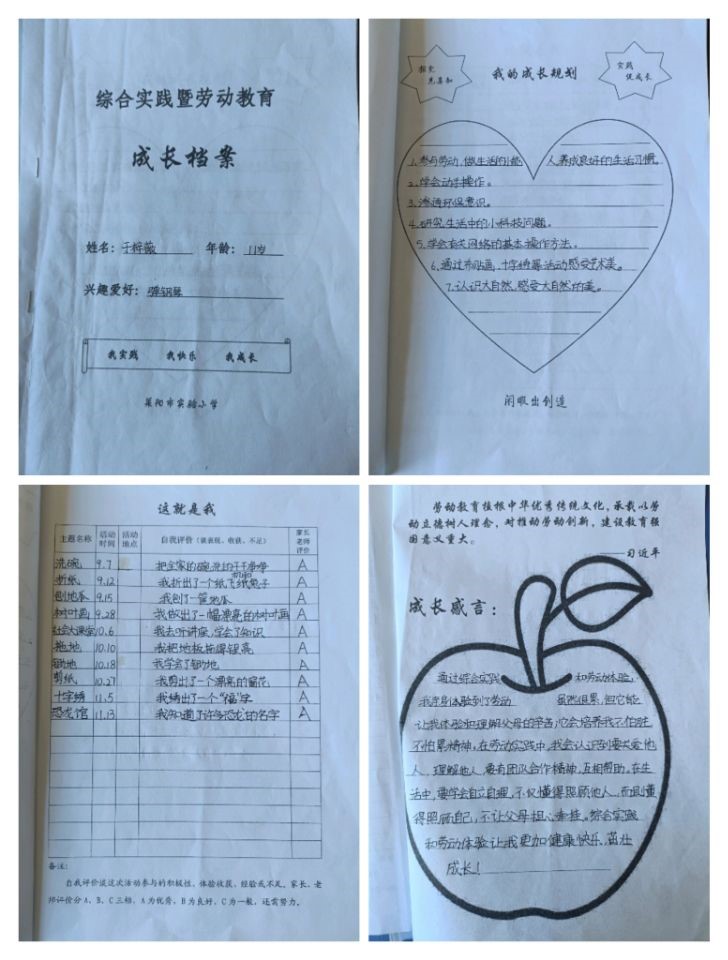 综合实践暨劳动教育
成长档案
姓名：于梓薇 年龄：11岁
兴趣爱好：弹钢琴
我实践 我快乐 我成长
莱阳市实验小学
探究
求真知
我的成长规划
实践
促成长
1.参与劳动,做生活的小能人,养成良好的生活习惯。
2.学会动手操作。
3.渗透环保意识。
4.研究生活中的小科技问题。
5.学会有关网络的基本操作方法。
6.通过布贴画,十字绣等活动感受艺术美。
7.认识大自然,感受大自然的美。
闲暇出创造
这就是我
主题名称 活动时间 活动地点 自我评价（谈表现、收获、不足） 家长老师评价
洗碗 9.7 把全家的碗洗的干干净净 A
折纸 9.12 我折出了个纸飞机和纸兔子 A
刨地瓜 9.15 我刨了一筐地瓜 A
树叶画 9.28 我做出了一幅漂亮的树叶画 A
社会大课堂 10.6 我去听讲座,学会了知识 A
拖地 10.10 我把地板拖得锃亮 A
锄地 10.18 我学会了锄地 A
剪纸 10.27 我剪出了一个漂亮的窗花 A
十字绣 11.5 我绣出了一个“福”字 A
恐龙馆 11.13 我知道了许多恐龙的名字 A
备注：
自我评价谈这次活动参与的积极性、体验收获、经验或不足。家长、老
师评价分A、B、C三档，A为优秀，B为良好，C为一般，还需努力。
劳动教育植根中华优秀传统文化，承载以劳
动立德树人理念，对推动劳动创新，建设教育强
国意义重大。
——习近平
成长感言：
通过综合实践和劳动体验,
我亲身体验到了劳动虽然很累,但它能
让我体验和理解父母的辛苦;它会培养我不怕脏
不怕累精神。在劳动实践中,我会认识到要关爱他
人,理解他人,要有团队合作精神,互相帮助。在生
活中,要学会自立自理,不仅懂得照顾他人,而且懂
得照顾自己,不让父母担心牵挂。综合实践
和劳动体验让我更加健康快乐,茁壮
成长!